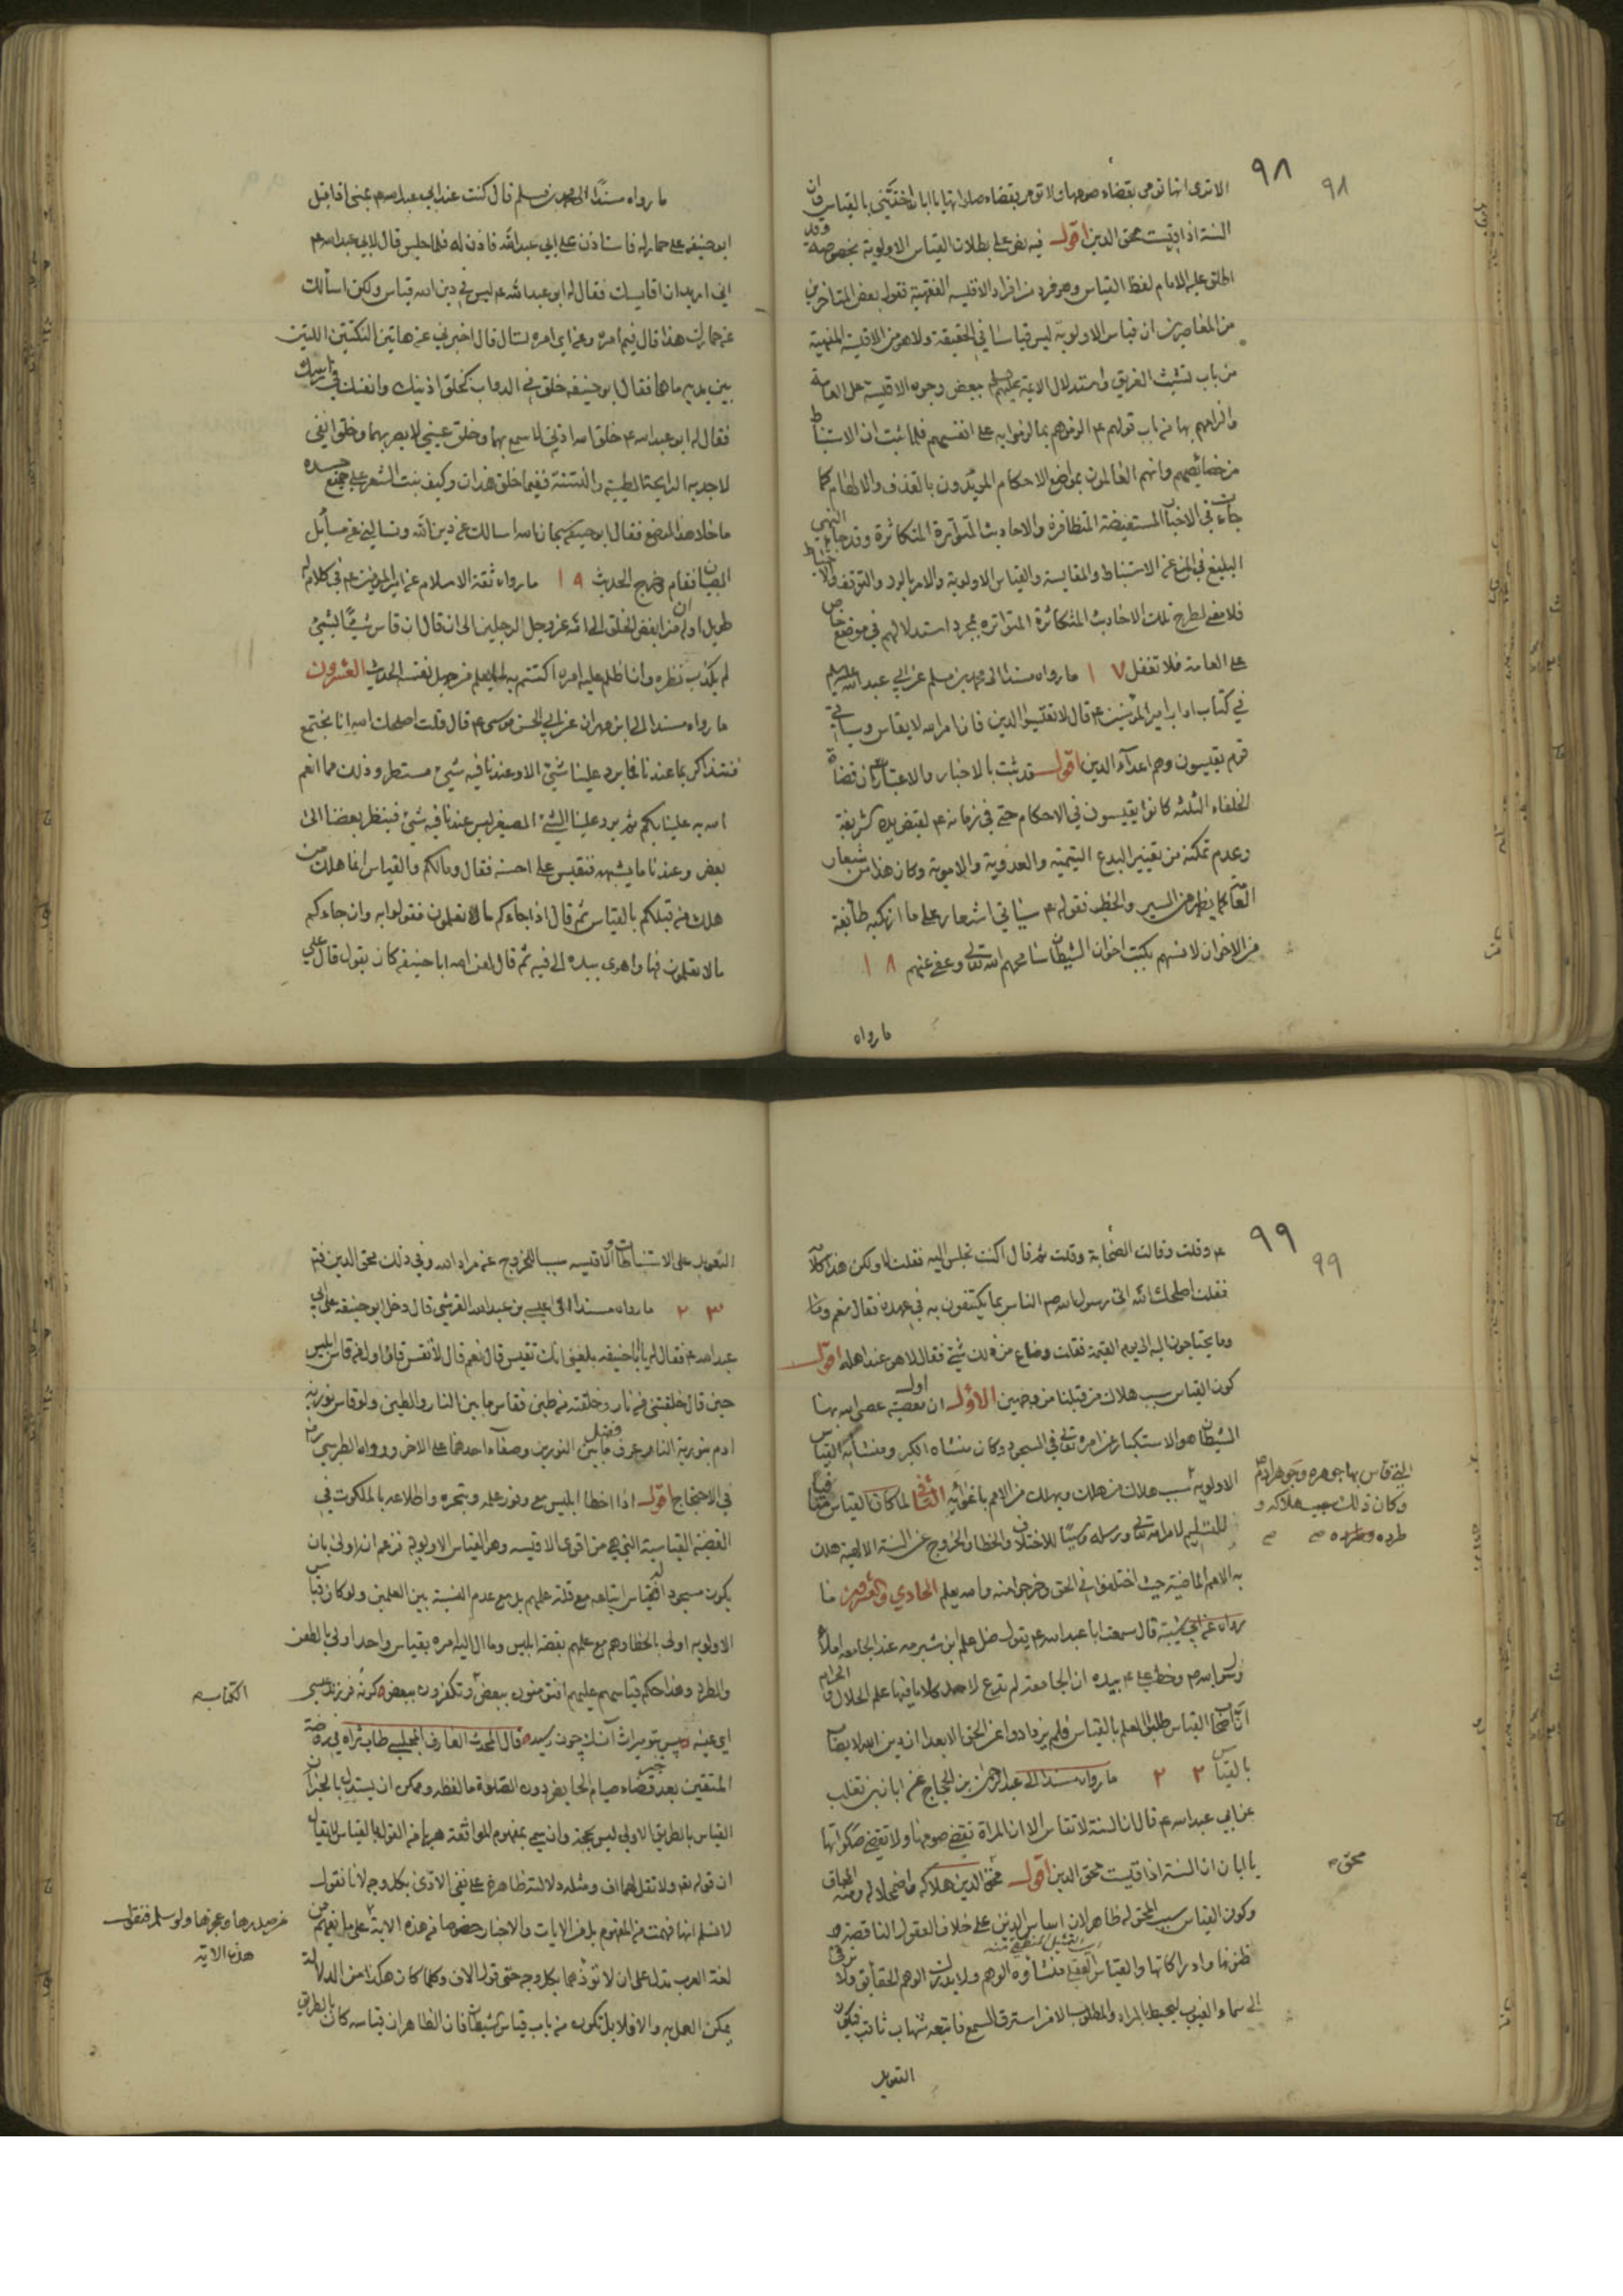 ٩٨
٩٨
الا ترى انها تؤمر بقضاء صومها ولا تؤمر بقضاء صلاتها يا ابان اخذتني بالقياس وان
السنة اذا قيست محق الدين اقول فيه نص على بطلان القياس الاولوية بخصوصه وقد
اطلق عليه الامام لفظ القياس وهو فرد من افراد الاقيسه الفقهية فقول بعض المتاخرين
من المعاصرين ان قياس الاولوية ليس قياسا في الحقيقة ولا هو من الاقيسة المنهية
من باب تشبث الغريق واستدلال الائمة عليهم السلم ببعض وجوه الاقيسة على العامة
والزامهم بها من باب قولهم ع الزموهم بما الزموا به على انفسهم فلما ثبت ان الاستنباط
من خصائصهم وانهم العالمون بمواضع الاحكام المويدون بالقذف والالهام كما
جاءت في الاخبار المستفيضة المتظافرة والاحاديث المتواترة المتكاثرة وقد جاء النهي
البليغ في المنع عن الاستنباط والمقايسة والقياس الاولوية والامر بالرد والتوقف والاحتياط
فلا معنى لطرح تلك الاحاديث المتكاثرة المتواتره بمجرد استدلالهم في موضع خاص
على العامة فلا تغفل ١٧ ما رواه مسندا الى محمد بن مسلم عن ابي عبد الله عليه السلم
في كتاب اداب امير المؤمنين ع قال لا تقيسوا الدين فان امر الله لا يقاس وسياتي
قوم يقيسون وهم اعدآء الدين اقول قد ثبت بالاخبار والاعتبار ان قضاة
الخلفاء الثلثه كانوا يقيسون في الاحكام حتى في زمانه ع لقبض يده الشريفة
وعدم تمكنه من تغيير البدع التيمية والعدوية والاموية وكان هذا من شعار
القآ كما يظهر من السير والخطب فقوله ع سياتي اشعار على ما ارتكبه طائفة
من الاخوان لانسهم بكتب اخوان الشيطان سامحهم الله تعالى وعفى عنهم ١٨
ما رواه
ما رواه مسندًا الى محمد بن مسلم قال كنت عند ابي عبد الله ع بمنى اذ اقبل
ابو حنيفه على حمار له فاستاذن على ابي عبد الله فاذن له فلما جلس قال لابي عبد الله ع
اني اريد ان اقايسك فقال له ابو عبد الله ع ليس في دين الله قياس ولكن اسألك
عن حمارك هذا قال فيم امره وعن اي امره تسال قال اخبرني عن هاتين النكتتين اللتين
بين يديه ما هما فقال ابو حنيفه خلق في الدواب كخلق اذنيك وانفك في راسك
فقال له ابو عبد الله ع خلق الله اذني لاسمع بهما وخلق عيني لابصر بهما وخلق انفي
لاجد به الرايحة الطيبة والنتنة ففيما خلق هذان وكيف نبت الشعر على جميع جسده
ما خلا هذا الموضع فقال ابو حنيفه سبحان الله اسالك عن دين الله وتسالني عن مسائل
الصبيان فقام وخرج الحديث ١٩ ما رواه ثقة الاسلام عن امير المؤمنين ع في كلام له
طويل اوله ان من ابغض الخلق الى الله عز وجل لرجلين الى ان قال ان قاس شيئًا بشيئ
لم يكذب نظره وان اظلم عليه امره اكتتم به لما يعلم من جهل نفسه الحديث العشرون
ما رواه مسندا الى ابن مهران عن ابي الحسن موسى ع قال قلت اصلحك الله انا نجتمع
فنتذاكر بما عندنا فما يرد علينا شئ الا وعندنا فيه شيئ مستطر وذلك مما انعم
الله به علينا بكم ثم يرد علينا الشيئ الصغير ليس عندنا فيه شيئ فينظر بعضنا الى
بعض وعندنا ما يشبهه فنقيس على احسنه فقال ومالكم والقياس انما هلك من
هلك من قبلكم بالقياس ثم قال اذا جاءكم ما تعلمون فقولوا به وان جاءكم
ما لا تعلمون فها واهوى بيده الى فيه ثم قال لعن الله ابا حنيفه كان يقول قال علي
٩٩
٩٩
ع وقلت وقالت الصحابة وقلت ثم قال اكنت تجلس اليه فقلت لا ولكن هذا كلامه
فقلت اصلحك الله اتى رسول الله ص الناس بما يكتفون به في عهده فقال نعم وما
وما يحتاجون اليه الى يوم القيمة فقلت وضاع من ذلك شئ فقال لا هو عند اهله اقول
كون القياس سبب هلاك من قبلنا من وجهين الاول ان اول معصية عصي الله بها
الشيطان هو الاستكبار عن امره تعالى في السجود وكان منشاه الكبر ومنشاءه القياس
الاولوية سبب هلاك من هلك ويهلك من الامم باغوائه الثاني لما كان القياس منافيا
للتسليم لامر الله تعالى ورسله وسببًا للاختلاف والخطا والخروج عن السنة الالهية هلك
به الامم الماضية حيث اختلفوا في الحق وخرجوا منه والله يعلم الحادي والعشرون ما
رواه عن ابي شيبة قال سمعت ابا عبد الله ع يقول ضل علم ابن شبرمه عند الجامعه املاء
رسول الله ص وخط علي ع بيده ان الجامعة لم تدع لاحد كلاما فيها علم الحلال والحرام
ان اصحاب القياس طلبوا العلم بالقياس فلم يزدادوا عن الحق الا بعدا ان دين الله لا يصاب
بالقياس ٢٢ ما رواه مسندا الى عبد الرحمن بن الحجاج عن ابان بن تغلب
عن ابي عبد الله ع قال ان السنة لا تقاس الا ترى ان المراة تقضي صومها ولا تقضي صلواتها
يا ابان ان السنة اذا قيست محق الدين اقول محق الدين هلاكه واضمحلاله ومنه المحاق
وكون القياس سبب المحق له ظاهر لان اساس الدين على خلاف العقول الناقصة و
ظنونها وادراكاتها والقياس الفقهي منشاؤه الوهم ولا يدرك الوهم الحقائق ولا يرقى
الى سماء الغيوب ليحيط بالمراد والمطلوب الا من استرق السمع فاتبعه شهاب ثاقب فيكون
التعويل
التي قاس بها جوهره وجوهر ادم
وكان ذلك سبب هلاكه و
طرده
محق
التعويل على الاستنباطات والاقيسه سببا للخروج عن مراد الله وفي ذلك محق الدين فتم
٢٣ ما رواه مسندا الى عيسى بن عبد الله القرشي قال دخل ابو حنيفه على ابي
عبد الله ع فقال له يا ابا حنيفه بلغني انك تقيس قال نعم قال لا تقس فان اول من قاس ابليس
حين قال خلقتني من نار وخلقته من طين فقاس ما بين النار والطين ولو قاس نورية
ادم بنورية النار عرف فضل ما بين النورين وصفاء احدهما على الاخر ورواه الطبرسي ره
في الاحتجاج اقول اذا اخطا ابليس مع وفور علمه وتبحره واطلاعه بالملكوت في
القضية القياسية التي هي من اقوى الاقيسه وهو القياس الاولوية فزعم انه اولى بان
يكون مسجودا له فقياس اتباعه مع قلة علمهم بل مع عدم النسبة بين العلمين ولو كان قياس
الاولويه اولى بالخطا وهم مع علمهم بقصة ابليس وما ال اليه امره بقياس واحد اولى بالطعن
والطرد وهذا حكم قياسهم عليهم افتؤمنون ببعض وتكفرون ببعض كرنه فرزند بليسى
اي عنيد پس بتو ميراث آنسگ چون رسيد قال المحدث العارف المجلسي طاب ثراه في روضة
المتقين بعد خبر قضاء صيام الحايض دون الصلوة ما لفظه ويمكن ان يستدل بالخبر ان
القياس بالطريق الاولي ليس بحجة وان سمي بمفهوم الموافقة هربا من القول بالقياس لا يقال
ان قوله تعالى ولا تقل لهما اف ومثله دلالته ظاهرة على نفي الاذى بكل وجه لانا نقول
لا نسلم انها فهمت من المفهوم بل من الايات والاخبار خصوصا في هذه الاية على ما يفهم من
لغة العرب تدل على ان لا تؤذهما بكل وجه حتى قول الاف وكلما كان هكذا من الدلالة
يمكن العمل به والا فلا بل تكون من باب قياس الشيطان فان الظاهر ان قياسه كان بالطريق
الكتاب
من صدرها وعجزها ولو سلم فنقول
هذه الاية